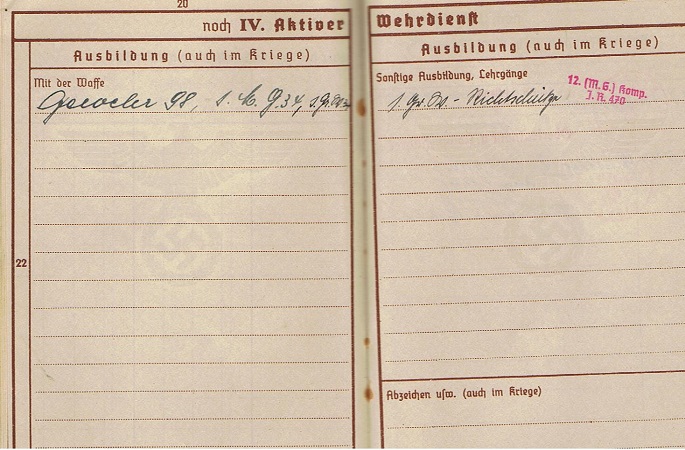 20
noch IV. Aktiver Wehrdienst
Ausbildung (auch im Kriege)
Mit der Waffe
Gewehr 98, s. M. G. 34, s. Gr. W.
22
Ausbildung (auch im Kriege)
Sonstige Ausbildung, Lehrgänge
s. Gr. W. - Richtschütze
12. (M. G.) Komp.
J. R. 470
Abzeichen usw. (auch im Kriege)